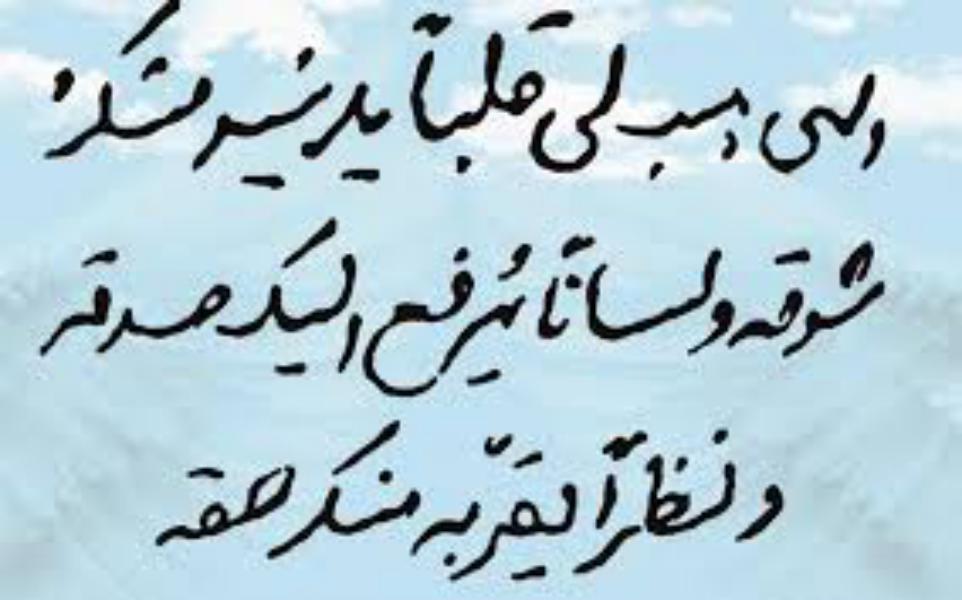 الهی هب لی قلباً یدنیه منک
شوقه ولساناً یُرفع الیک صدقه
و نظراً یقرّبه منک حقه